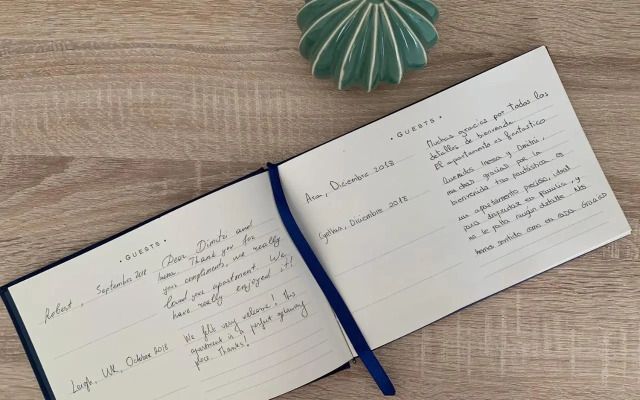 • GUESTS •
Robert, September 2018
Dear Dimitri and
Inna. Thank you for
your compliments, we really
loved your apartment. We
have really enjoyed it!
Leigh, UK, October 2018
We felt very welcome! This
apartment is a perfect getaway
place. Thanks!
• GUESTS •
Ana, Diciembre 2018
Muchas gracias por todos los
detalles de bienvenida.
El apartamento es fantastico
Cynthia, Diciembre 2018
Queridos Inessa y Dmitri,
muchas gracias por la
bienvenida tan
es
un apartamento precioso, ideal
para disfrutar en familia, y
no le falta ningún detalle. Nos
hemos sentido como en casa. Gracias